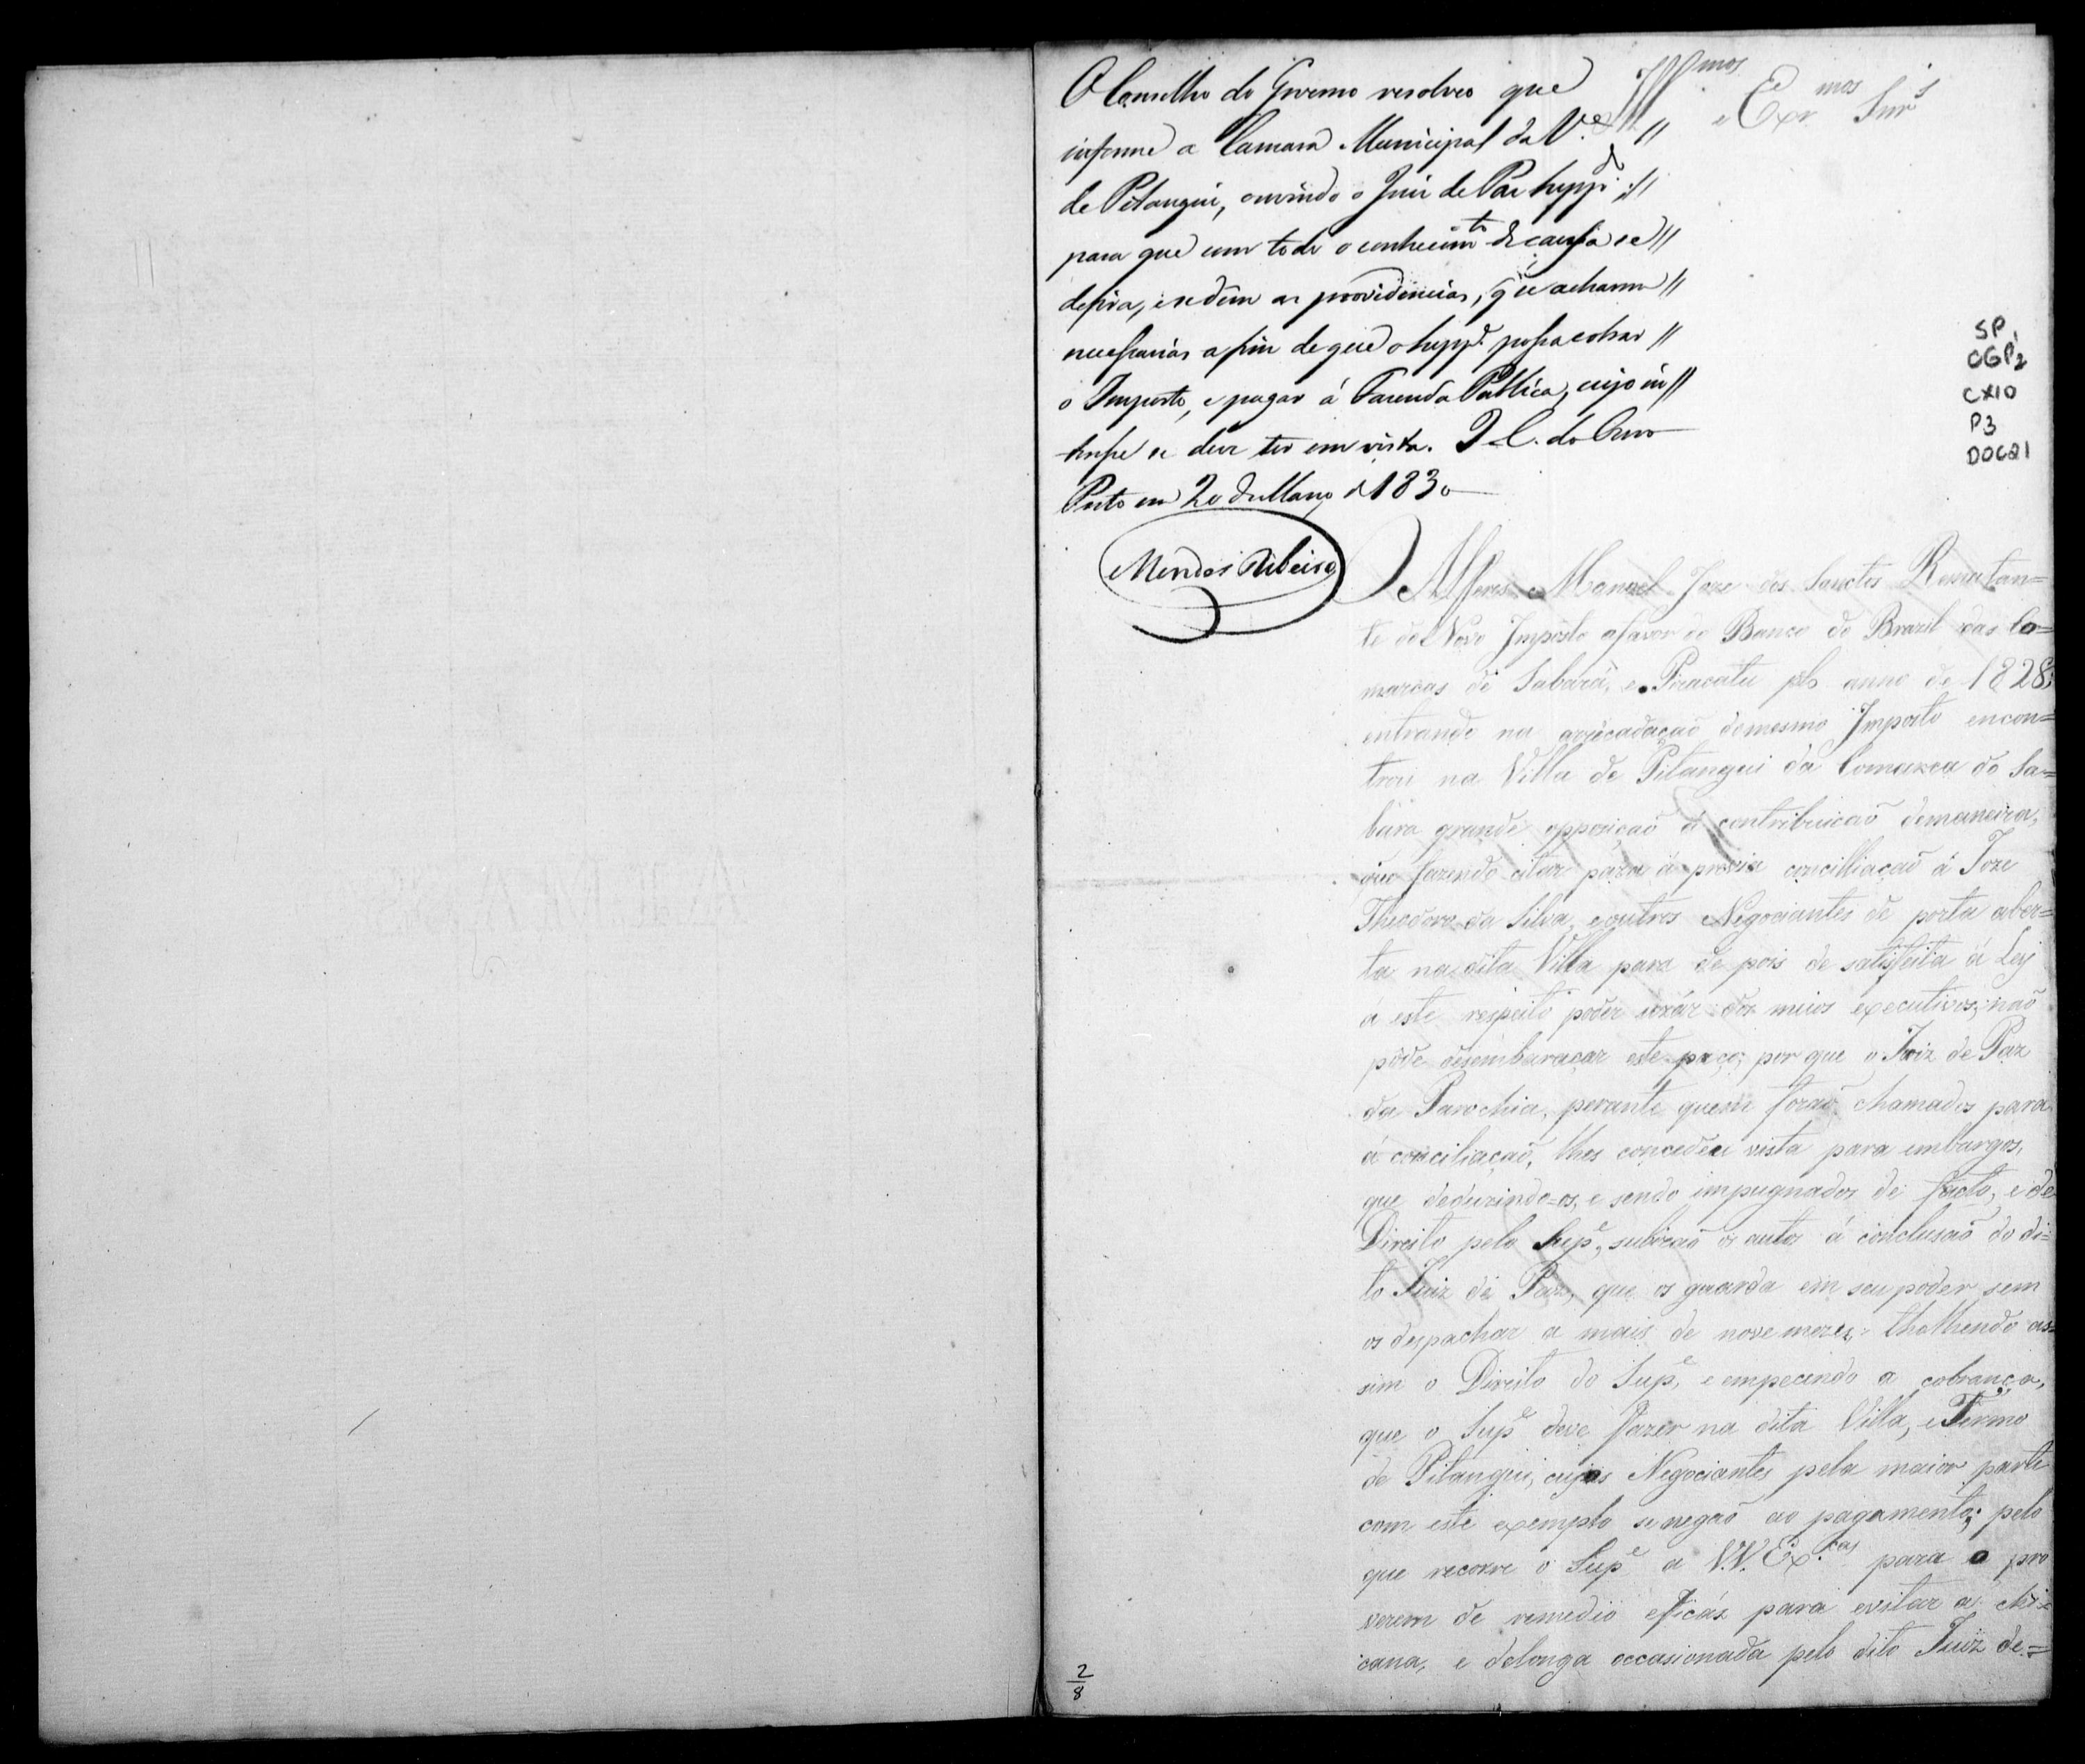 Ill.mos e Ex.mos Snr.s
O Conselho do Governo resolveo que
informe a Camara Municipal da V.a
de Pitangui, ouvindo o Juiz de Paz supp.do
para que com todo o conhecim.to de causa se
defira, e se dem as providencias, q̃ se acharem
necessarias a fim de que o Supp.e possa cobrar
o Imposto, e pagar á Fazenda Publica, cujo in
teresse se deve ter em vista. I. C. do Ouro
Preto em 20 de Março de 1830
Mendes Ribeiro
SP,
CGP2
CX10
P3
DOC21
O Alferes Manoel Joze dos Sanctos Rematan=
te do Novo Imposto a favor do Banco do Brazil das Co=
marcas de Sabará, e Paracatu p.lo anno de 1828,
entrando na arrecadaçaõ do mesmo Imposto encon=
trou na Villa de Pitangui da Comarca do Sa=
bará grande opposiçaõ á contribuicaõ de maneira,
que fazendo citar para a previa concilliaçaõ á Joze
Theodoro da Silva, e outros Negociantes de porta aber=
ta na dita Villa para de pois de satisfeita á Ley
á este respeito poder uzár dos meios executivos, naõ
póde desembaraçar este paço; por que o Juiz de Paz
da Parochia, perante quem foraõ chamados para
á conciliaçaõ, lhes concedeu vista para embargos,
que deduzindo=os, e sendo impugnados de facto, e de
Direito pelo Sup.e, subiraõ os autos á conclusaõ do di=
to Juiz de Paz, que os guarda em seu poder sem
os despachar a mais de nove mezes, tholhendo as=
sim o Direito do Sup.e, e empecendo a cobrança,
que o Sup.e deve fazer na dita Villa, e Termo
de Pitangui, cujos Negociantes pela maior parte
com este exemplo se negaõ ao pagamento; pelo
que recorre o Sup.e a V.V. Ex.cas para o pro
verem de remedio eficáz para evitar a chi=
cana, e delonga occasionada pelo dito Juiz de=
2
8